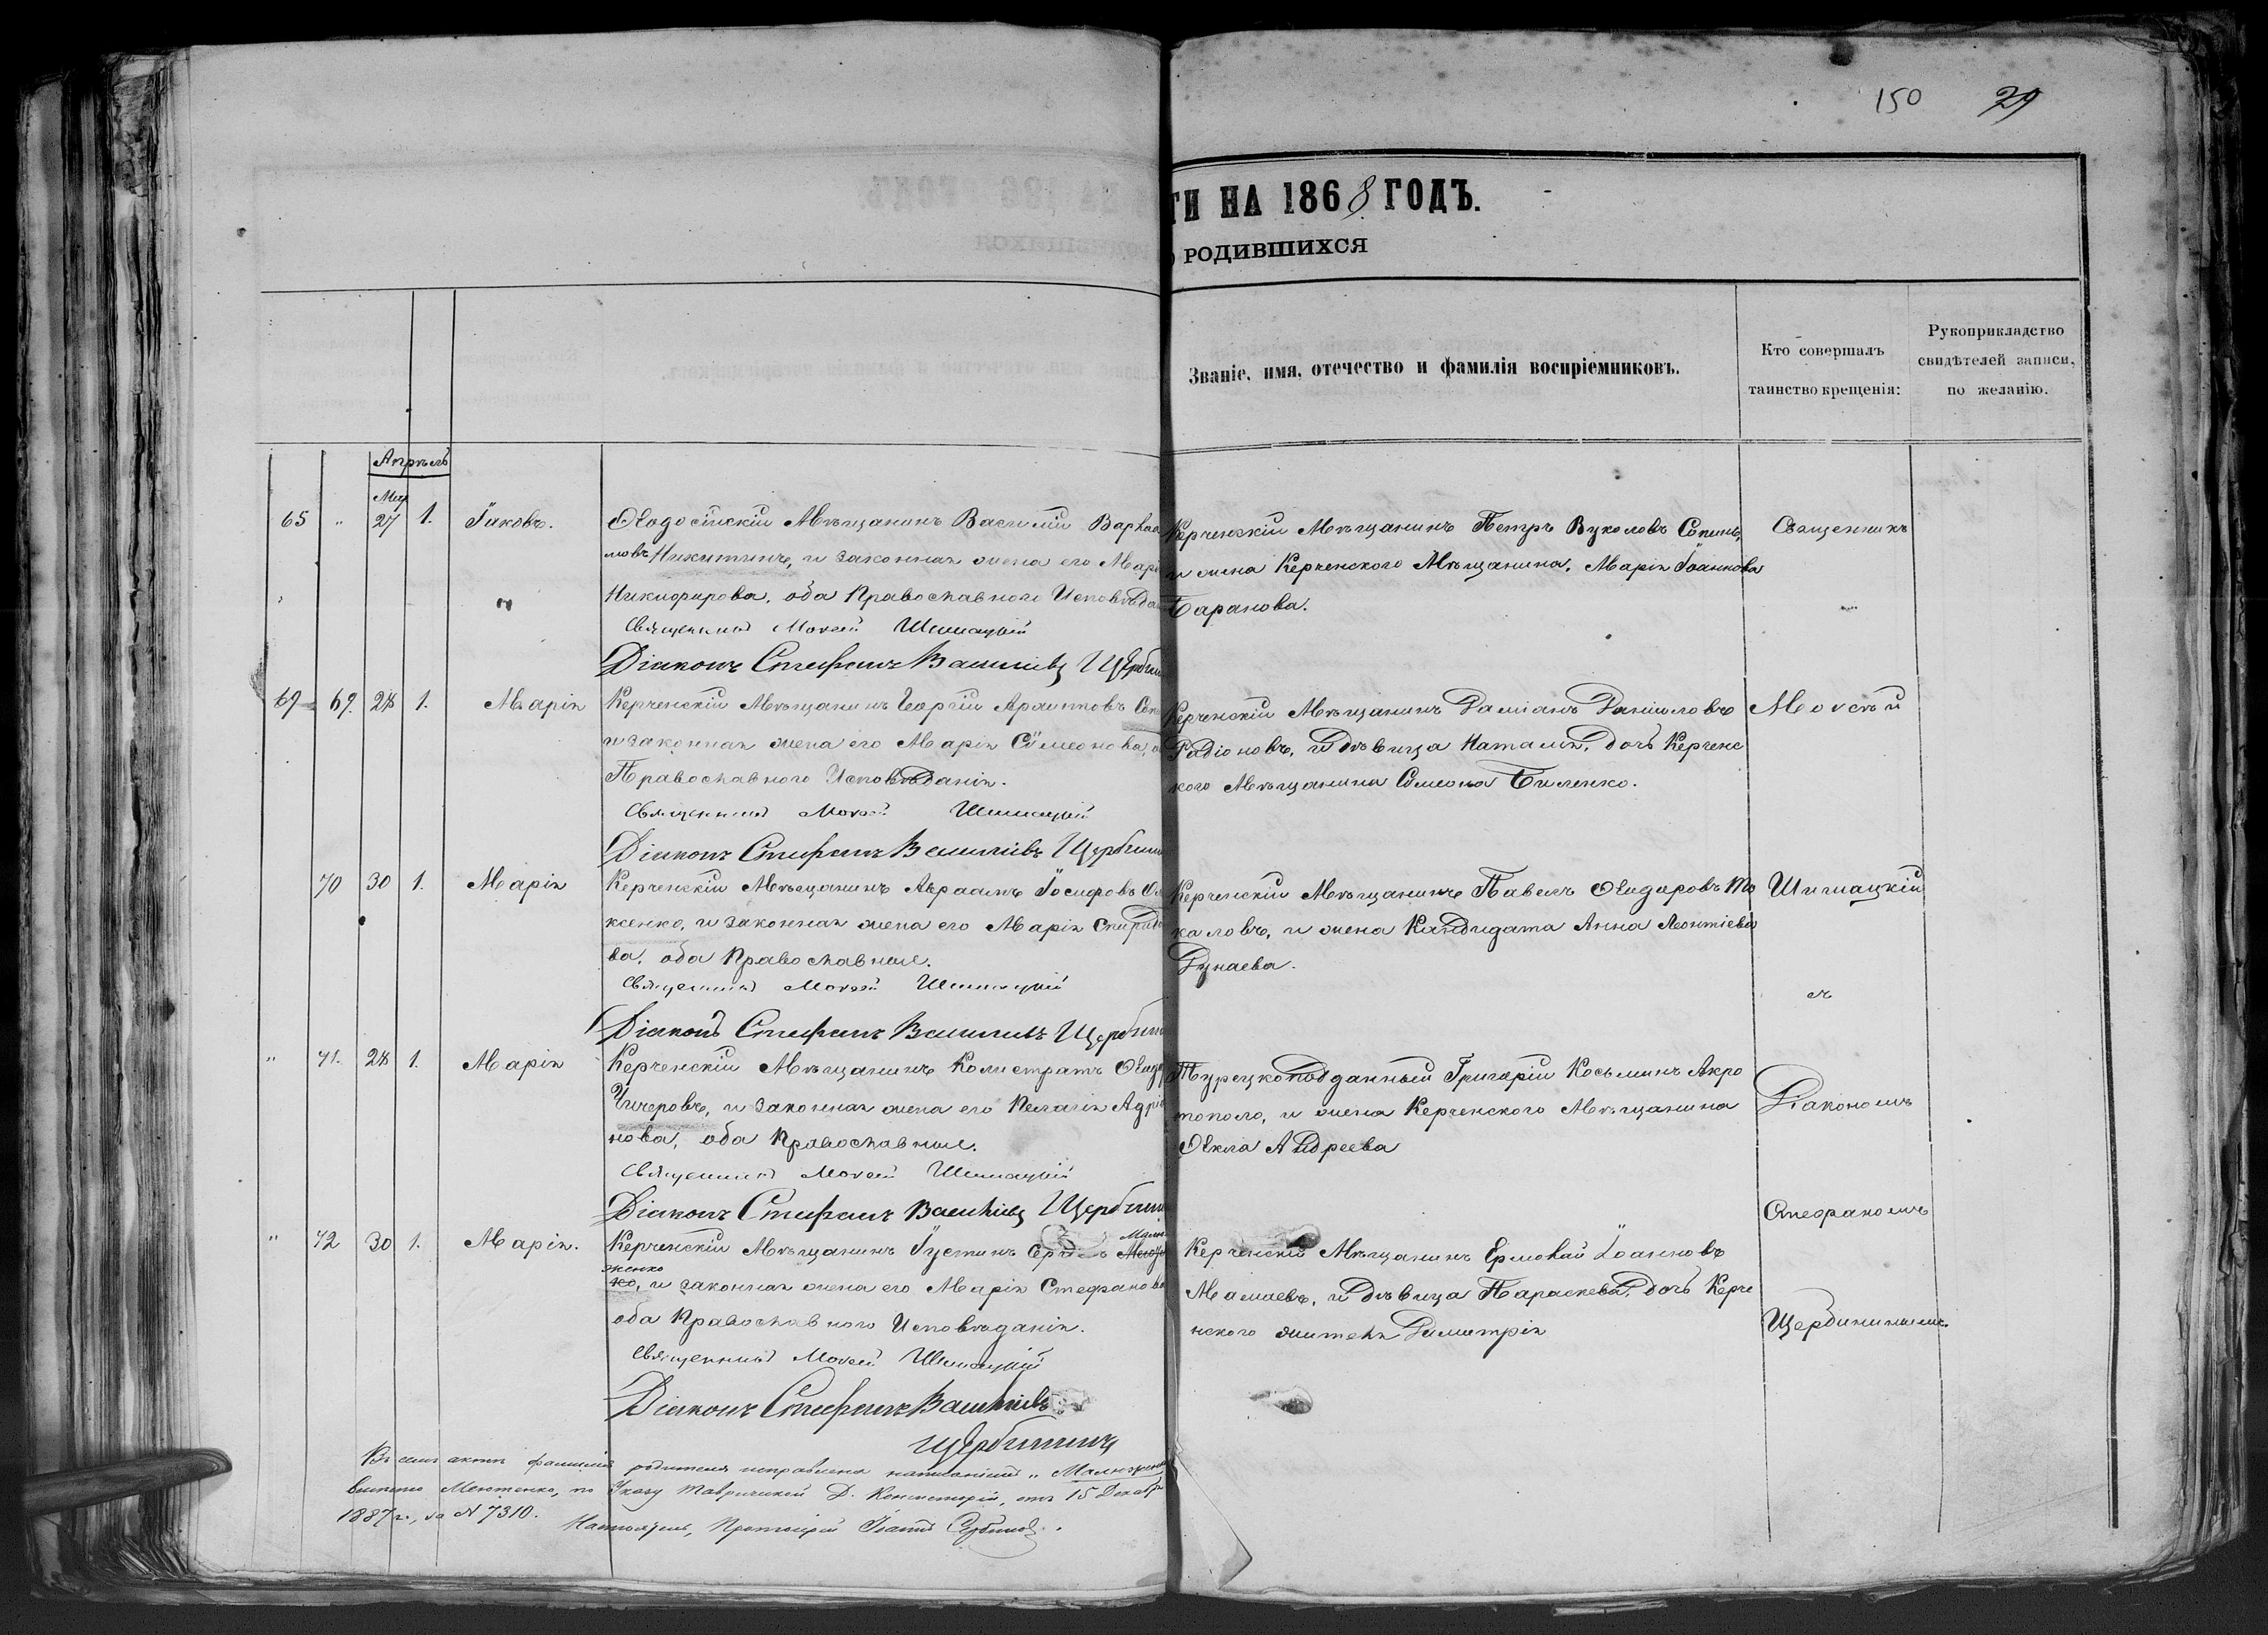 150 29
ТИ НА 1868 ГОДЪ.
РОДИВШИХСЯ
Званіе, имя, отечество и фамилія воспріемниковъ.
Кто совершалъ
таинство крещенія:
Рукоприкладство
свидѣтелей записи,
по желанію.
Апрѣль
Мар
65 " 27 1. Іаковъ.
Ѳеодосійскій Мѣщанинъ Василій Варѳол
мовъ Никитинъ, и законная жена его Мар
Никифорова, оба Православнаго Исповѣда
Священникъ Моѵсей Шимацкій
Діаконъ Стефанъ Василіевъ Щерби
Керченскій Мѣщанинъ Петръ Вуколовъ Сопинъ,
и жена Керченского Мѣщанина, Марія Іоаннова
Баранова.
Священникъ
69 69. 28 1. Марія
Керченскій Мѣщанинъ Георгій
и законная жена его Марія Сѵмеонова,
Православного Исповѣданія.
Священникъ Моѵсей Шимацкій
Діаконъ Стефанъ Василіевъ Щербин
Керченскій Мѣщанинъ Даміанъ Даніиловъ
Радіоновъ, и дѣвица Наталія, дочь Керченс
кого Мѣщанина Сѵмеона Биленко.
Моѵсей
70 30 1. Марія
Керченскій Мѣщанинъ Авраамъ Іосифовъ
ксенко, и законная жена его Марія Спиридо
ва, оба Православные.
Священникъ Моѵсей Шимацкій
Діаконъ Стефанъ Василіевъ Щербин
Керченскій Мѣщанинъ Павелъ Ѳеодоровъ
каловъ, и жена Кандидата Анна Леонтіева
Дунаева.
Шимацкій
съ
" 71. 28 1. Марія
Керченскій Мѣщанинъ Калистратъ Ѳеодо
Чичеровъ, и законная жена его Пелагія Адріа
нова, оба Православные.
Священникъ Моѵсей Шимацкій
Діаконъ Стефанъ Василіевъ Щербин
Турецкоподданный Григорій Косьминъ Акро
тополо, и жена Керченского Мѣщанина
Ѳекла Андреева
Діакономъ
Стефаномъ
" 72 30 1. Марія.
Керченскій Мѣщанинъ Іустинъ
женко
ко, и законная жена его Марія Стефанова
оба Православного Исповѣданія.
Священникъ Моѵсей Шимацкій
Діаконъ Стефанъ Василіевъ
Щербининъ
Керченскій Мѣщанинъ Ермолай Іоанновъ
Мамаевъ, и дѣвица Параскева, дочь Керче
нского жителя Димитрія
Щербининымъ.
Въ семъ актѣ фамилія родителя исправлена написаніемъ „Малюженко
вмѣсто Мелютенко, по Указу Таврической Д. Консисторіи, отъ 15 Декабр
1887 г., за № 7310.
Настоятель, Протоіерей Іоаннъ